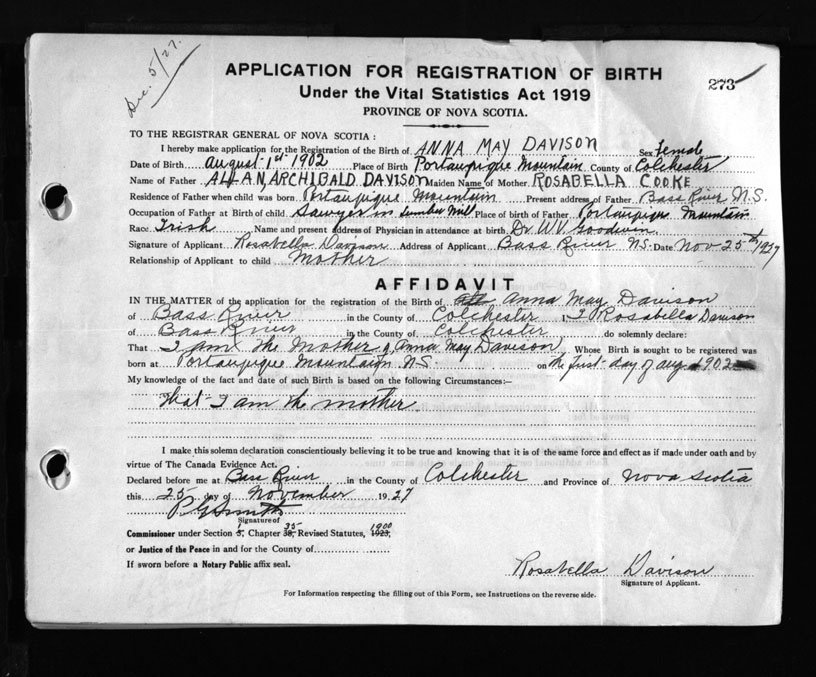 Dec. 5/27.
APPLICATION FOR REGISTRATION OF BIRTH
273
Under the Vital Statistics Act 1919
PROVINCE OF NOVA SCOTIA.
TO THE REGISTRAR GENERAL OF NOVA SCOTIA:
I hereby make application for the Registration of the Birth of ANNA MAY DAVISON Sex Female
Date of Birth August 1st 1902 Place of Birth Portaupique Mountain County of Colchester
Name of Father ALLAN, ARCHIBALD DAVISON Maiden Name of Mother ROSABELLA COOKE
Residence of Father when child was born Portaupique Mountain Present address of Father Bass River N.S.
Occupation of Father at Birth of child Sawyer in Lumber Mill Place of birth of Father Portaupique Mountain
Race Irish Name and present address of Physician in attendance at birth Dr. W.V. Goodwin.
Signature of Applicant Rosabella Davison Address of Applicant Bass River NS. Date Nov 25th 1927
Relationship of Applicant to child Mother
AFFIDAVIT
IN THE MATTER of the application for the registration of the Birth of Anna May Davison
of Bass River in the County of Colchester , I Rosabella Davison
of Bass River in the County of Colchester do solemnly declare:
That I am the Mother of Anna May Davison Whose Birth is sought to be registered was
born at Portaupique Mountain NS. on the first day of Aug 1902
My knowledge of the fact and date of such Birth is based on the following Circumstances:—
That I am the mother.
I make this solemn declaration conscientiously believing it to be true and knowing that it is of the same force and effect as if made under oath and by
virtue of The Canada Evidence Act.
Declared before me at Bass River in the County of Colchester and Province of Nova Scotia
this 25 day of November 1927
Signature of
1 35 1900
Commissioner under Section 3, Chapter 38, Revised Statutes, 1923,
or Justice of the Peace in and for the County of
If sworn before a Notary Public affix seal.
Rosabella Davison
Signature of Applicant.
For Information respecting the filling out of this Form, see Instructions on the reverse side.